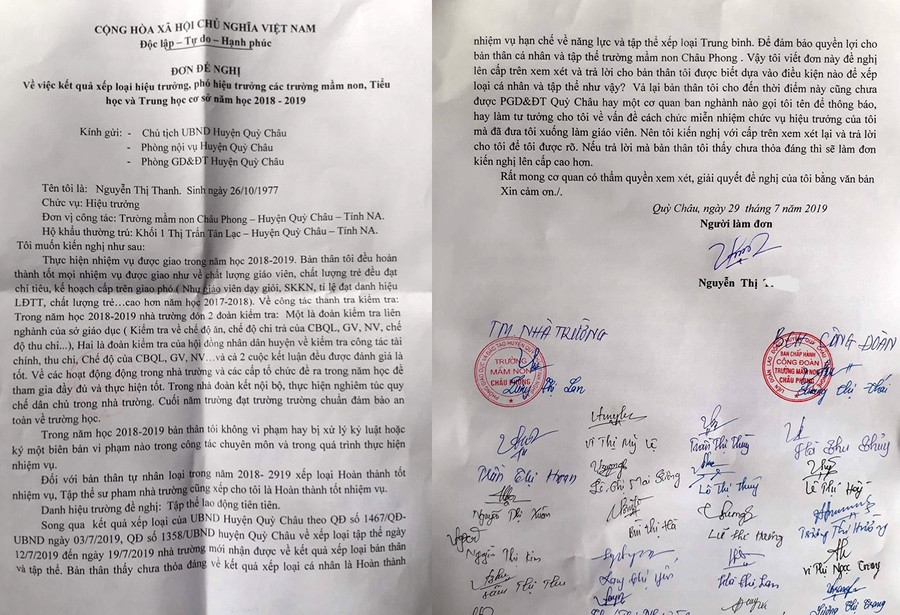 CỘNG HÒA XÃ HỘI CHỦ NGHĨA VIỆT NAM
Độc lập – Tự do – Hạnh phúc
ĐƠN ĐỀ NGHỊ
Về việc kết quả xếp loại hiệu trưởng, phó hiệu trưởng các trường mầm non, Tiểu
học và Trung học cơ sở năm học 2018 - 2019
Kính gửi: - Chủ tịch UBND Huyện Quỳ Châu
- Phòng nội vụ Huyện Quỳ Châu
- Phòng GD&ĐT Huyện Quỳ Châu
Tên tôi là: Nguyễn Thị Thanh. Sinh ngày 26/10/1977
Chức vụ: Hiệu trưởng
Đơn vị công tác: Trường mầm non Châu Phong – Huyện Quỳ Châu – Tỉnh NA.
Hộ khẩu thường trú: Khối 1 Thị Trấn Tân Lạc – Huyện Quỳ Châu – Tỉnh NA.
Tôi muốn kiến nghị như sau:
Thực hiện nhiệm vụ được giao trong năm học 2018-2019. Bản thân tôi đều hoàn
thành tốt mọi nhiệm vụ được giao như về chất lượng giáo viên, chất lượng trẻ đều đạt
chỉ tiêu, kế hoạch cấp trên giao phó.( Như giáo viên dạy giỏi, SKKN, tỉ lệ đạt danh hiệu
LĐTT, chất lượng trẻ…cao hơn năm học 2017-2018). Về công tác thanh tra kiểm tra:
Trong năm học 2018-2019 nhà trường đón 2 đoàn kiểm tra: Một là đoàn kiểm tra liên
nghành của sở giáo dục ( Kiểm tra về chế độ ăn, chế độ chi trả của CBQL, GV, NV, chế
độ thu chi...), Hai là đoàn kiểm tra của hội đồng nhân dân huyện về kiểm tra công tác tài
chính, thu chi, Chế độ của CBQL, GV, NV…và cả 2 cuộc kết luận đều được đánh giá là
tốt. Về các hoạt động động trong nhà trường và các cấp tổ chức đề ra trong năm học đề
tham gia đầy đủ và thực hiện tốt. Trong nhà đoàn kết nội bộ, thực hiện nghiêm túc quy
chế dân chủ trong nhà trường. Cuối năm trường đạt trường trường chuẩn đảm bảo an
toàn về trường học.
Trong năm học 2018-2019 bản thân tôi không vi phạm hay bị xử lý kỷ luật hoặc
ký một biên bản vi phạm nào trong công tác chuyên môn và trong quá trình thực hiện
nhiệm vụ.
Đối với bản thân tự nhân loại trong năm 2018- 2919 xếp loại Hoàn thành tốt
nhiệm vụ, Tập thể sư phạm nhà trường cũng xếp cho tôi là Hoàn thành tốt nhiệm vụ.
Danh hiệu trường đề nghị: Tập thể lao động tiên tiến.
Song qua kết quả xếp loại của UBND Huyện Quỳ Châu theo QĐ số 1467/QĐ-
UBND ngày 03/7/2019, QĐ số 1358/UBND huyện Quỳ Châu về xếp loại tập thể ngày
12/7/2019 đến ngày 19/7/2019 nhà trường mới nhận được về kết quả xếp loại bản thân
và tập thể. Bản thân thấy chưa thỏa đáng về kết quả xếp loại cá nhân là Hoàn thành
nhiệm vụ hạn chế về năng lực và tập thể xếp loại Trung bình. Để đảm bảo quyền lợi cho
bản thân cá nhân và tập thể trường mầm non Châu Phong . Vậy tôi viết đơn này đề nghị
lên cấp trên xem xét và trả lời cho bản thân tôi được biết dựa vào điều kiện nào để xếp
loại cá nhân và tập thể như vậy? Và lại bản thân tôi cho đến thời điểm này cũng chưa
được PGD&ĐT Quỳ Châu hay một cơ quan ban nghành nào gọi tôi tên để thông báo,
hay làm tư tưởng cho tôi về vấn đề cách chức miễn nhiệm chức vụ hiệu trưởng của tôi
mà đã đưa tôi xuống làm giáo viên. Nên tôi kiến nghị với cấp trên xem xét lại và trả lời
cho tôi để tôi được rõ. Nếu trả lời mà bản thân tôi thấy chưa thỏa đáng thì sẽ làm đơn
kiến nghị lên cấp cao hơn.
Rất mong cơ quan có thẩm quyền xem xét, giải quyết đề nghị của tôi bằng văn bản
Xin cảm ơn./.
Quỳ Châu, ngày 29 tháng 7 năm 2019
Người làm đơn
Nguyễn Thị
TM NHÀ TRƯỜNG
BCH CÔNG ĐOÀN
TRƯỜNG
MẦM NON
CHÂU PHONG
BAN CHẤP HÀNH
CÔNG ĐOÀN
TRƯỜNG MẦM NON
CHÂU PHONG
Vi Thị Mỹ Lệ
Trần Thị Thủy
Hà Thu Thủy
Lê Thị Mai Hồng
Lô Thị Thủy
Nguyễn Thị Xuân
Bùi Thị Hà
Trương Thị Hường
Nguyễn Thị Kim
Vi Thị Ngọc
Sầm Thị Thu
Hà Thị Lan